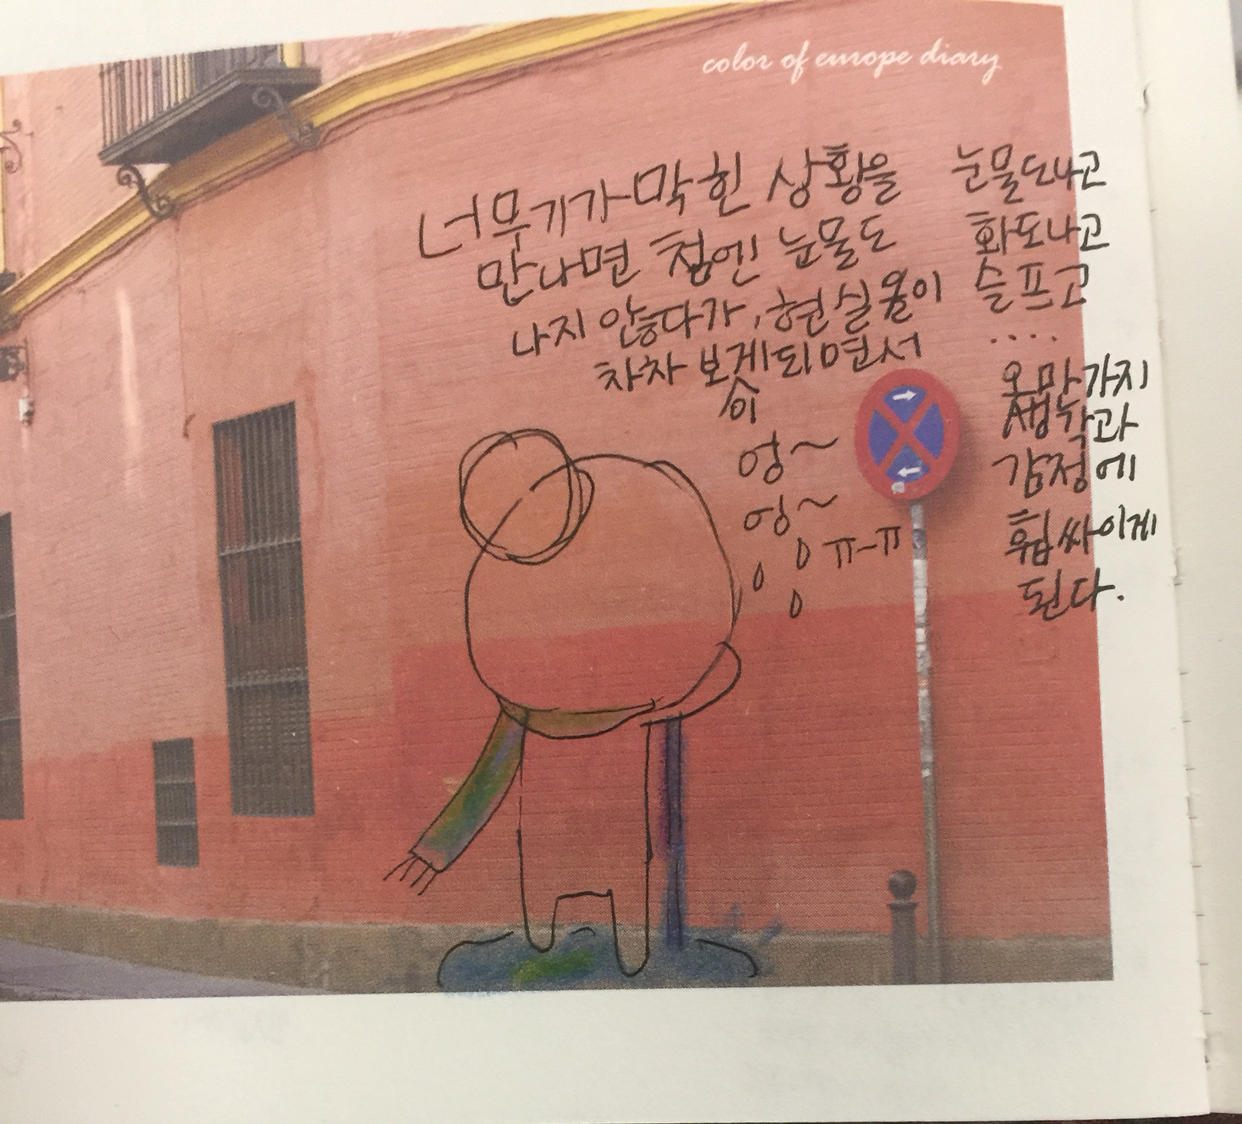 color of europe diary
너무 기가 막힌 상황을
만나면 첨엔 눈물도
나지 않다가, 현실을이
차차 보게되면서
이
엉~
엉~
ㅠ-ㅠ
눈물도나고
화도나고
슬프고
....
오만가지
생각과
감정에
휩싸이게
된다.